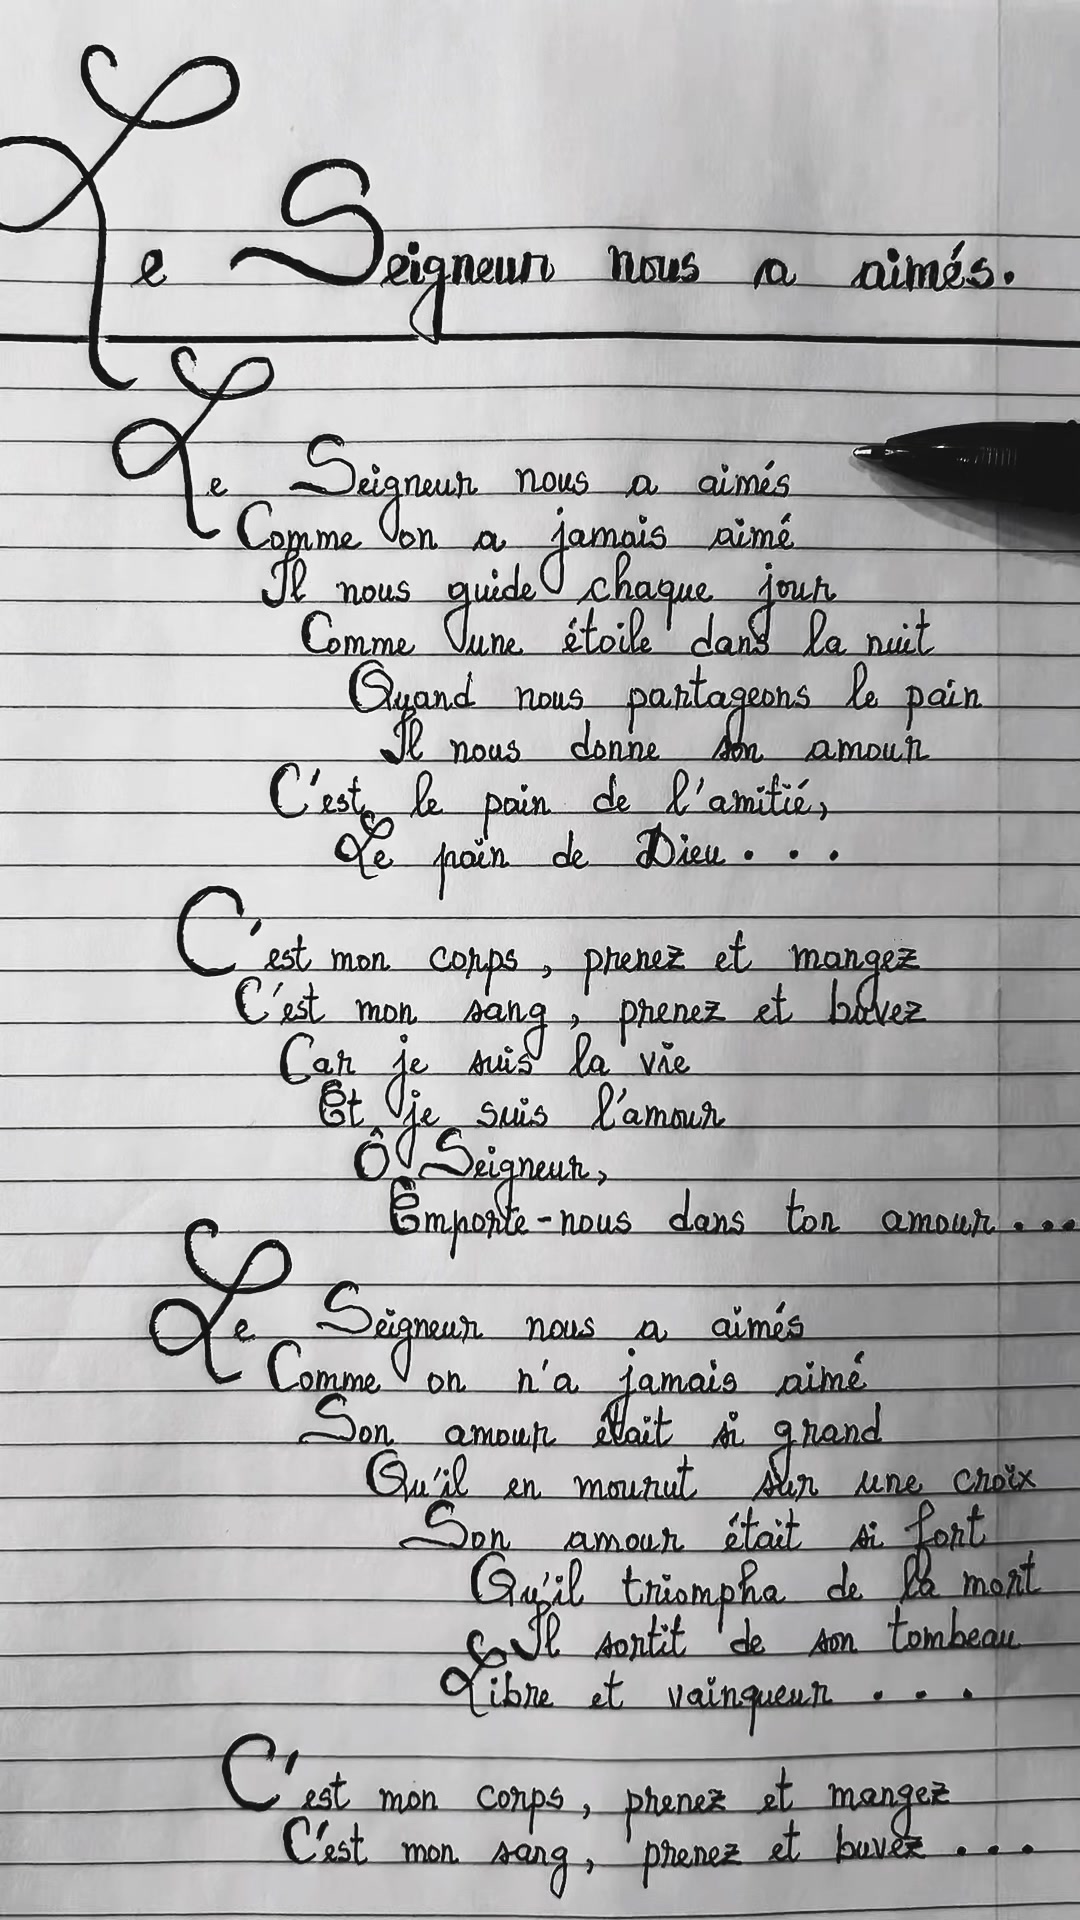 Le Seigneur nous a aimés.
Le Seigneur nous a aimés
Comme on a jamais aimé
Il nous guide chaque jour
Comme une étoile dans la nuit
Quand nous partageons le pain
Il nous donne son amour
C'est le pain de l'amitié,
Le pain de Dieu...
C'est mon corps, prenez et mangez
C'est mon sang, prenez et buvez
Car je suis la vie
Et je suis l'amour
Ô Seigneur,
Emporte-nous dans ton amour...
Le Seigneur nous a aimés
Comme on n'a jamais aimé
Son amour était si grand
Qu'il en mourut sur une croix
Son amour était si fort
Qu'il triompha de la mort
Il sortit de son tombeau
Libre et vainqueur...
C'est mon corps, prenez et mangez
C'est mon sang, prenez et buvez...